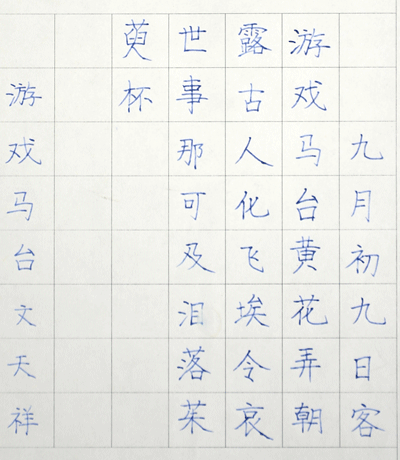 九月初九日客
游戏马台黄花弄朝
露古人化飞埃令哀
世事那可及泪落茱
萸杯
游戏马台文天祥